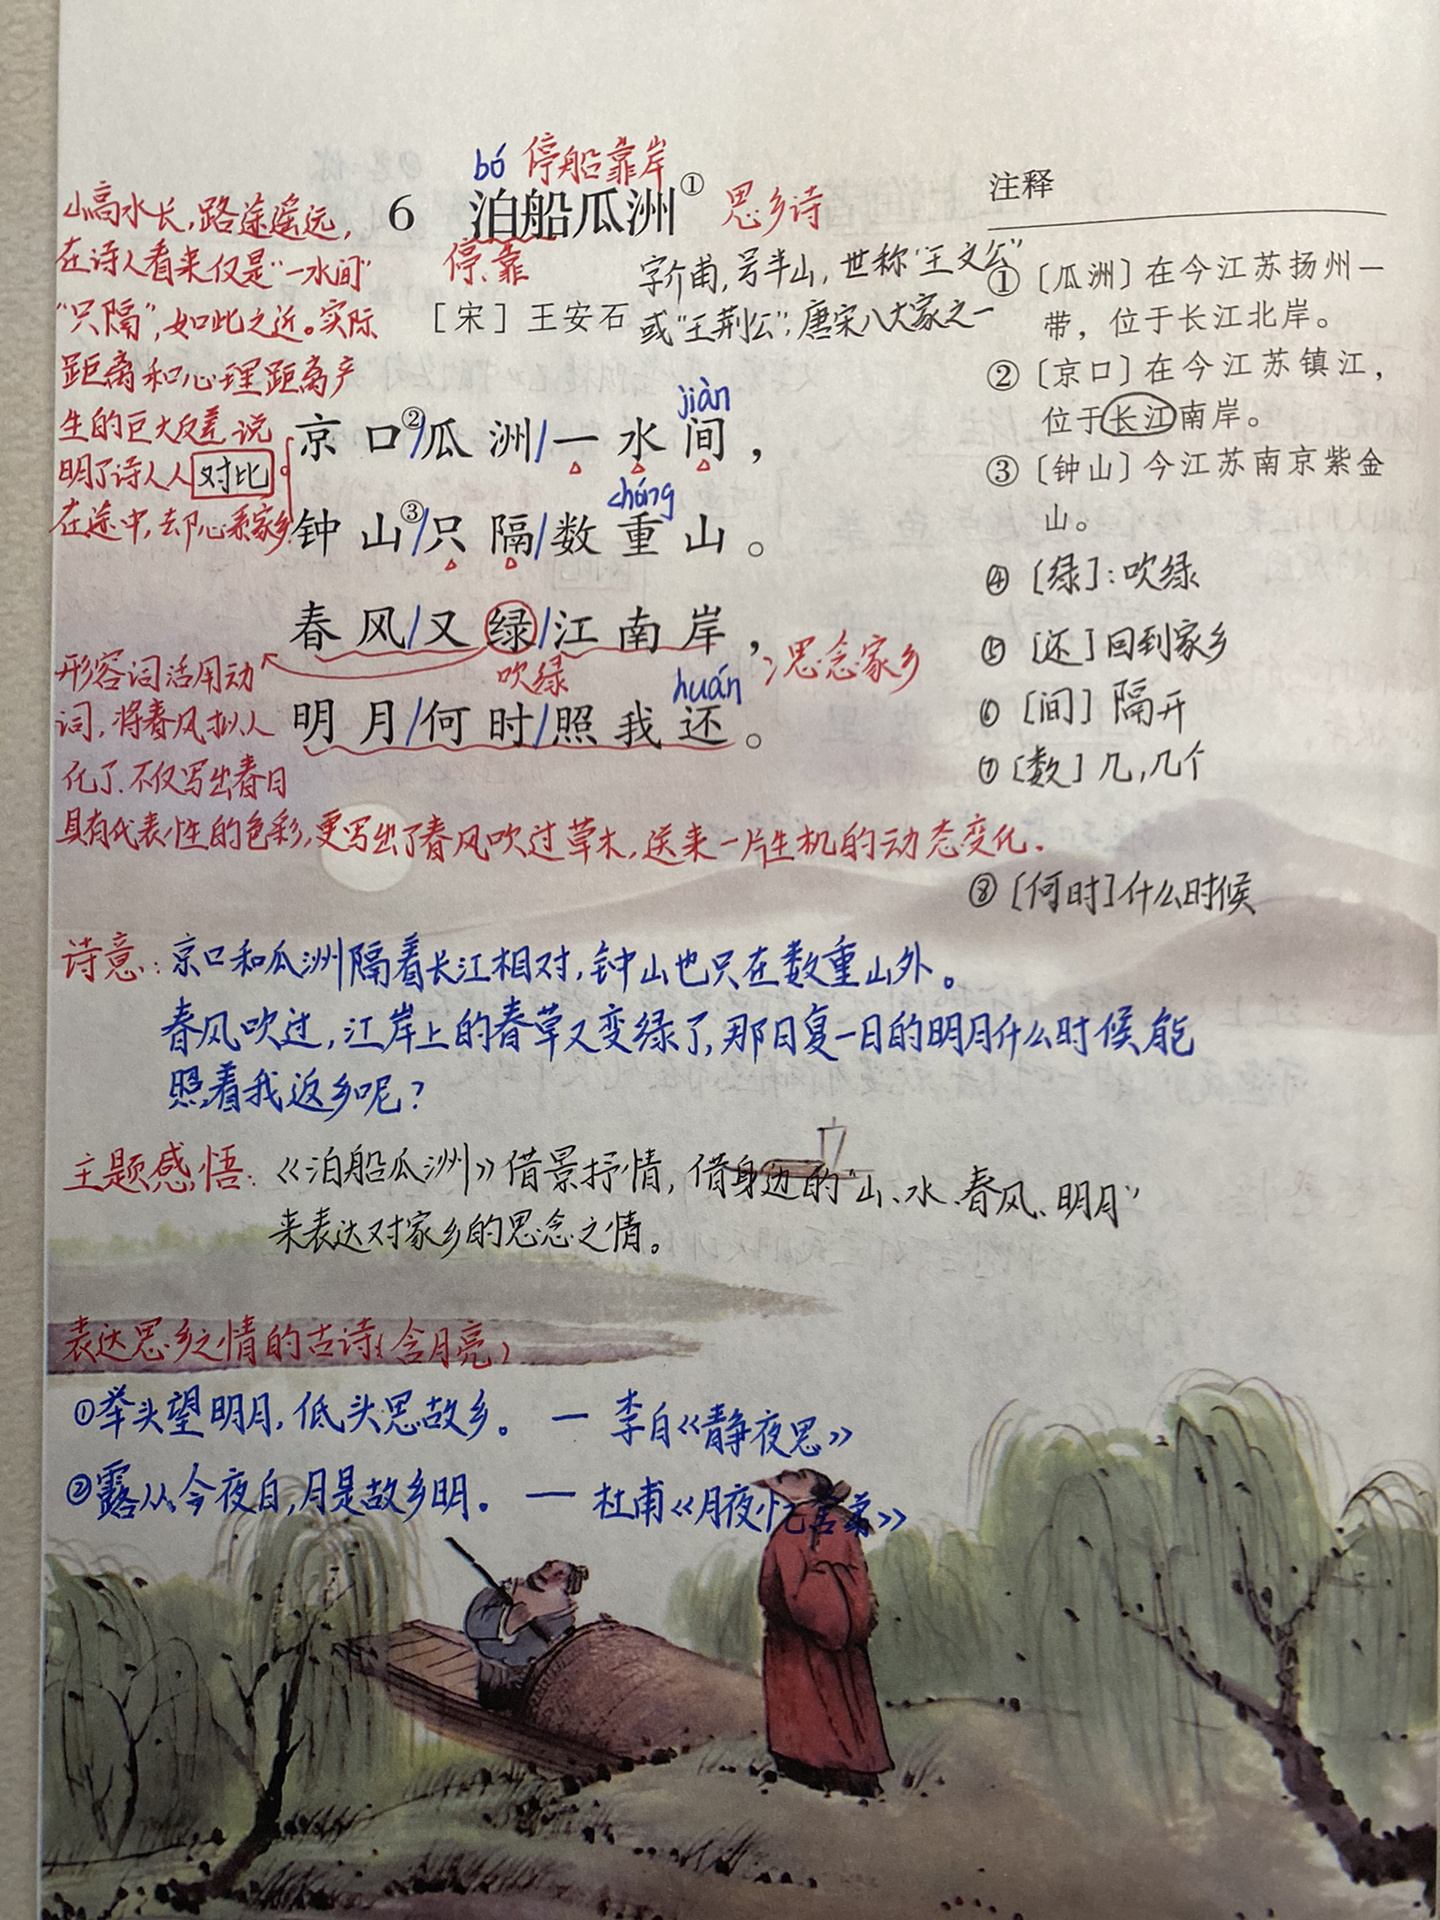 bó 停船靠岸
6 泊船瓜洲① 思乡诗
停、靠
［宋］王安石
字介甫,号半山,世称"王文公"
或"王荆公",唐宋八大家之一
山高水长,路途遥远,
在诗人看来仅是"一水间"
"只隔",如此之近。实际
距离和心理距离产
生的巨大反差说
明了诗人人 对比
在途中,却心系家乡.
jiàn
京口②/瓜洲/一水间，
chóng
钟山③/只隔/数重山。
春风/又绿/江南岸，
吹绿 huán ；思念家乡
明月/何时/照我还。
形容词活用动
词,将春风拟人
化了.不仅写出春日
具有代表性的色彩,更写出了春风吹过草木,送来一片生机的动态变化.
注释
①［瓜洲］在今江苏扬州一
带，位于长江北岸。
②［京口］在今江苏镇江，
位于长江南岸。
③［钟山］今江苏南京紫金
山。
④［绿］:吹绿
⑤［还］回到家乡
⑥［间］隔开
⑦［数］几,几个
⑧［何时］什么时候
诗意:京口和瓜洲隔着长江相对,钟山也只在数重山外。
春风吹过,江岸上的春草又变绿了,那日复一日的明月什么时候能
照着我返乡呢?
主题感悟:《泊船瓜洲》借景抒情,借身边的"山、水、春风、明月"
来表达对家乡的思念之情。
表达思乡之情的古诗(含月亮)
①举头望明月,低头思故乡。 — 李白《静夜思》
②露从今夜白,月是故乡明。 — 杜甫《月夜忆舍弟》